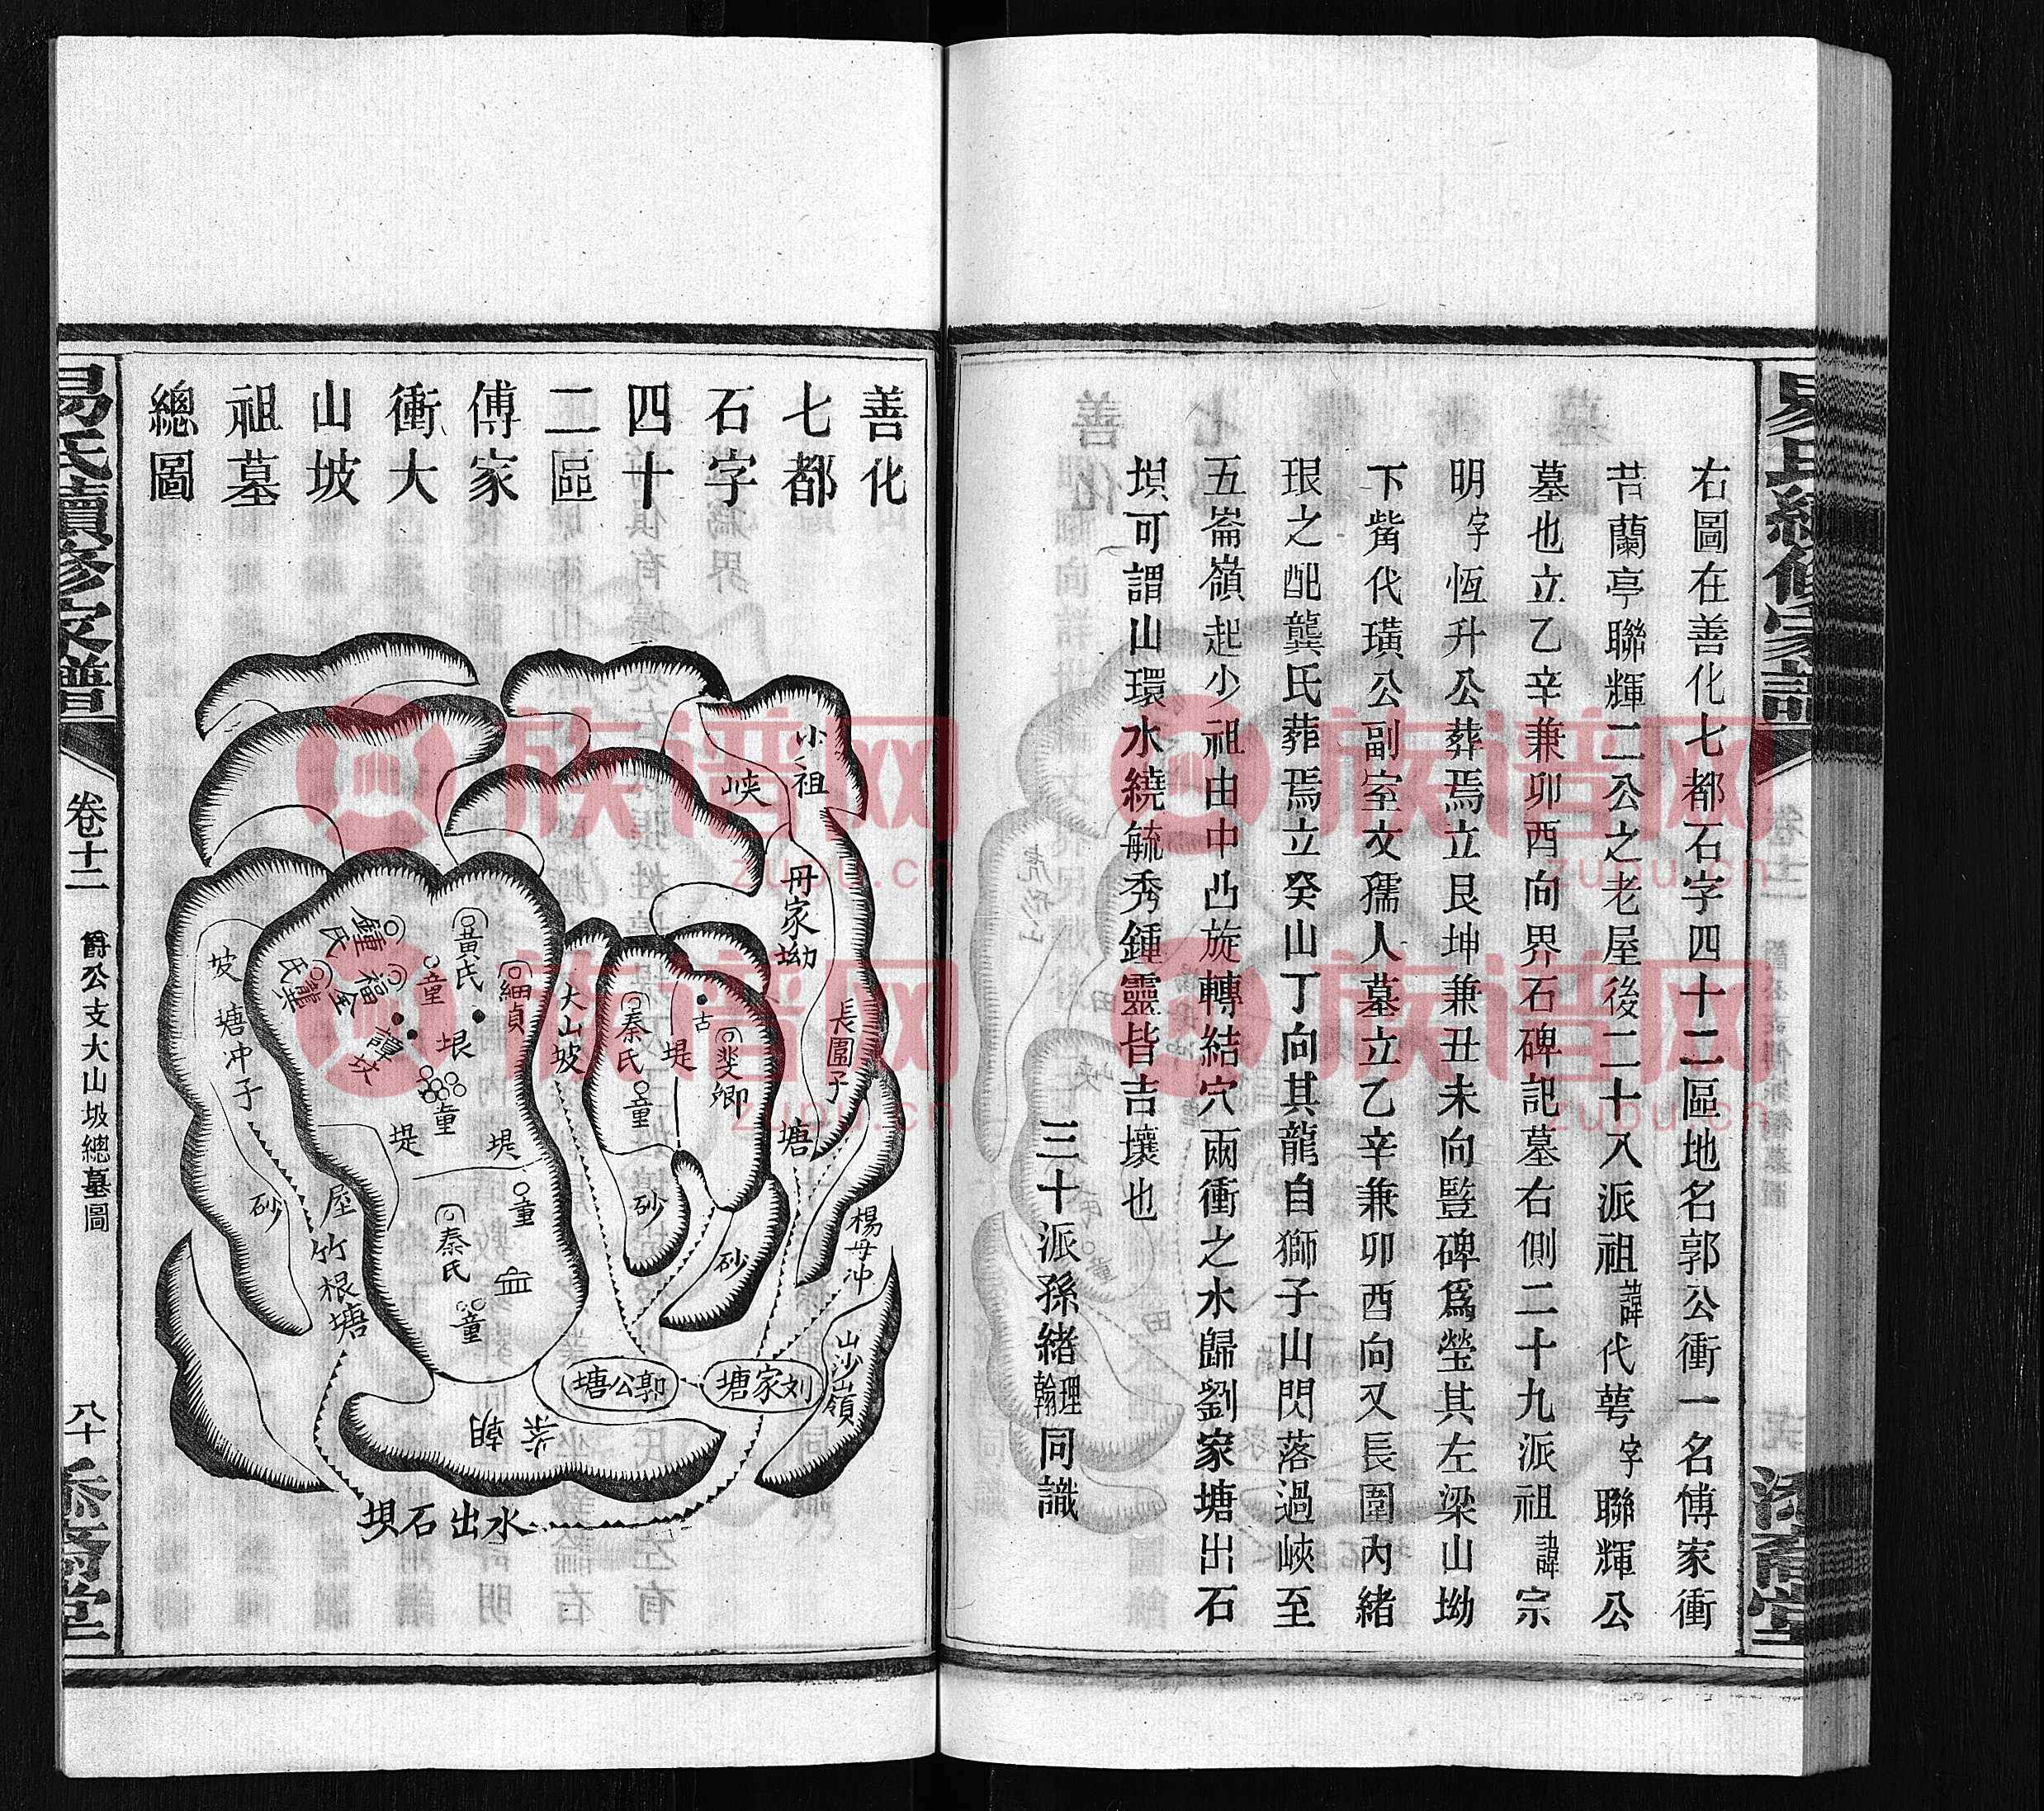 右圖在善化七都石字四十二區地名郭公衝一名傅家衝
苦蘭亭聯輝二公之老屋後二十八派祖諱代萼字聯輝公
墓也立乙辛兼卯酉向界石碑記墓右側二十九派祖諱宗
明字恆升公葬焉立艮坤兼丑未向豎碑爲塋其左梁山坳
下觜代璜公副室文孺人墓立乙辛兼卯酉向又長圍內緒
珢之配龔氏葬焉立癸山丁向其龍自獅子山閃落過峽至
五崙嶺起少祖由中凸旋轉結穴兩衝之水歸劉家塘出石
垻可謂山環水繞毓秀鍾靈皆吉壤也
三十派孫緒理翰同識
善化
七都
石字
四十
二區
傅家
衝大
山坡
祖墓
總圖
小祖
峽
冊家坳
長圍子
塘
楊母冲
山沙嶺
大山坡
秦氏
童
古
堤
斐卿
砂
砂
黃氏
細貞
鍾氏
福全
龔氏
童
譚坟
垠
童
堤
堤
童
秦氏
童
坡塘冲子
砂
屋竹根塘
郭公塘
刘家塘
朝
水出石垻
易氏續修家譜
卷十二
爵公支大山坡總墓圖
八十